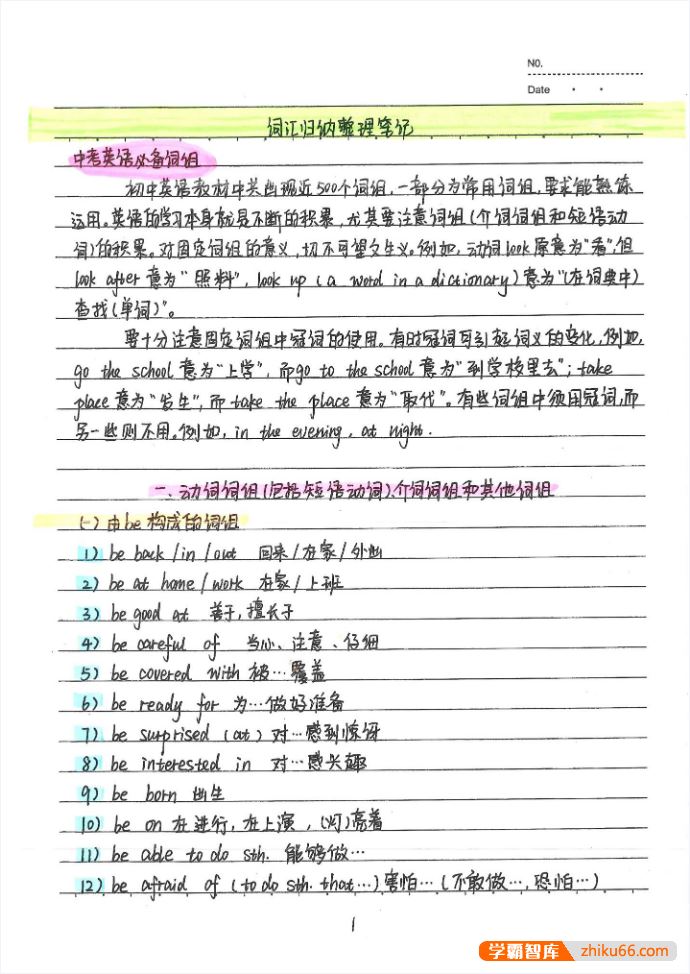 NO.
Date
词汇归纳整理笔记
中考英语必备词组
初中英语教材中共出现近500个词组,一部分为常用词组,要求能熟练
运用。英语的学习本身就是不断的积累,尤其要注意词组(介词词组和短语动
词)的积累。对固定词组的意义,切不可望文生义。例如,动词look原意为"看",但
look after意为"照料", look up (a word in a dictionary)意为"(在词典中)
查找(单词)"。
要十分注意固定词组中冠词的使用。有时冠词可引起词义的变化,例如,
go the school意为"上学",而go to the school意为"到学校里去"; take
place意为"发生",而take the place意为"取代"。有些词组中须用冠词,而
另一些则不用。例如, in the evening, at night.
一、动词词组(包括短语动词)、介词词组和其他词组
(一)由be构成的词组
1) be back/in/out 回来/在家/外出
2) be at home/work 在家/上班
3) be good at 善于,擅长于
4) be careful of 当心、注意、仔细
5) be covered with 被…覆盖
6) be ready for 为…做好准备
7) be surprised (at) 对…感到惊讶
8) be interested in 对…感兴趣
9) be born 出生
10) be on 在进行,在上演,(灯)亮着
11) be able to do sth. 能够做…
12) be afraid of (to do sth. that…) 害怕…(不敢做…,恐怕…)
1
学霸智库 zhiku66.com